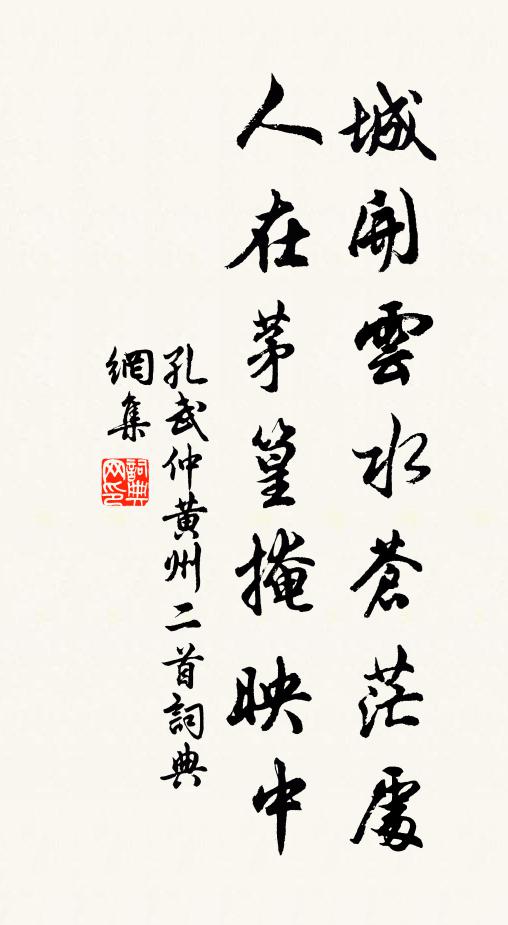 城開雲水蒼茫處
人在茅篁掩映中
孔武仲黃州二首詞典
網集
詞典
网印